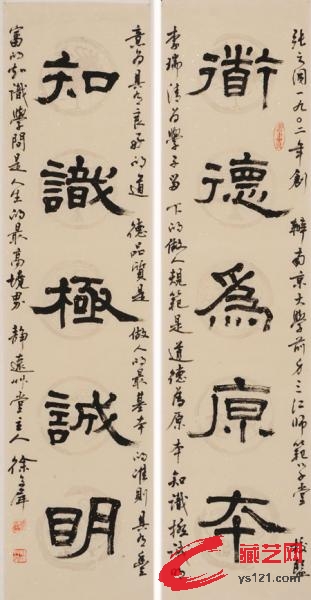 張之洞一九〇二年創辦南京大学前身三江师範学堂
衜德為原本
李瑞清为學子留下的做人規範是道德为原本知識極诚明
意为具有良好的道德品質是做人的最基本的准则具有豐
知識極誠明
富的知識學問是人生的最高境界静遠艸堂主人徐
藏艺网
ys121.com